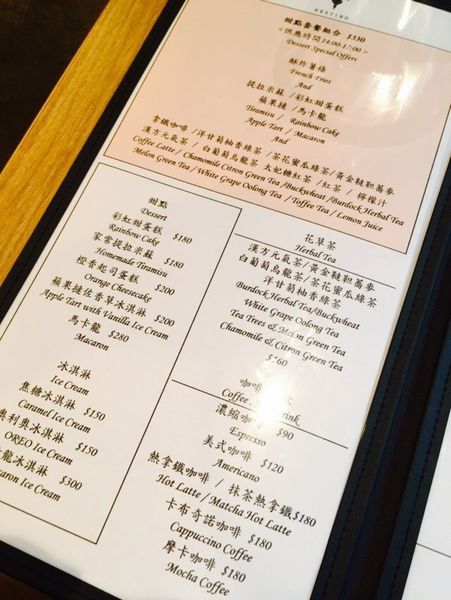 DESTINO
甜點套餐組合 $330
<供應時間14:00-17:00>
Dessert Special Offers
酥炸薯條
French Fries
And
提拉米蘇 /彩虹甜蛋糕
蘋果撻 / 馬卡龍
Tiramisu / Rainbow Cake
Apple Tart / Macaron
And
拿鐵咖啡 /洋甘菊柚香綠茶 /茶花蜜瓜綠茶/黃金韃靼蕎麥
漢方元氣茶 / 白葡萄烏龍茶 太妃糖紅茶 / 紅茶 / 檸檬汁
Coffee Latte / Chamomile Citron Green Tea /Buckwheat /Burdock Herbal Tea
Melon Green Tea / White Grape Oolong Tea / Toffee Tea / Lemon Juice
甜點
Dessert
彩虹甜蛋糕 $180
Rainbow Cake
家常提拉米蘇 $180
Homemade Tiramisu
橙香起司蛋糕 $200
Orange Cheesecake
蘋果撻佐香草冰淇淋 $200
Apple Tart with Vanilla Ice Cream
馬卡龍 $280
Macaron
冰淇淋
Ice Cream
焦糖冰淇淋 $150
Caramel Ice Cream
奧利奧冰淇淋 $150
OREO Ice Cream
龍冰淇淋 $300
Ice Cream
花草茶
Herbal Tea
漢方元氣茶/黃金韃靼蕎麥
白葡萄烏龍茶/茶花蜜瓜綠茶
洋甘菊柚香綠茶
Burdock Herbal Tea/Buckwheat
White Grape Oolong Tea
Tea Trees & Melon Green Tea
Chamomile & Citron Green Tea
$160
咖啡
Coffee
濃縮咖啡 $90
Espresso
美式咖啡 $120
Americano
熱拿鐵咖啡 / 抹茶熱拿鐵$180
Hot Latte / Matcha Hot Latte
卡布奇諾咖啡 $180
Cappuccino Coffee
摩卡咖啡 $180
Mocha Coffee